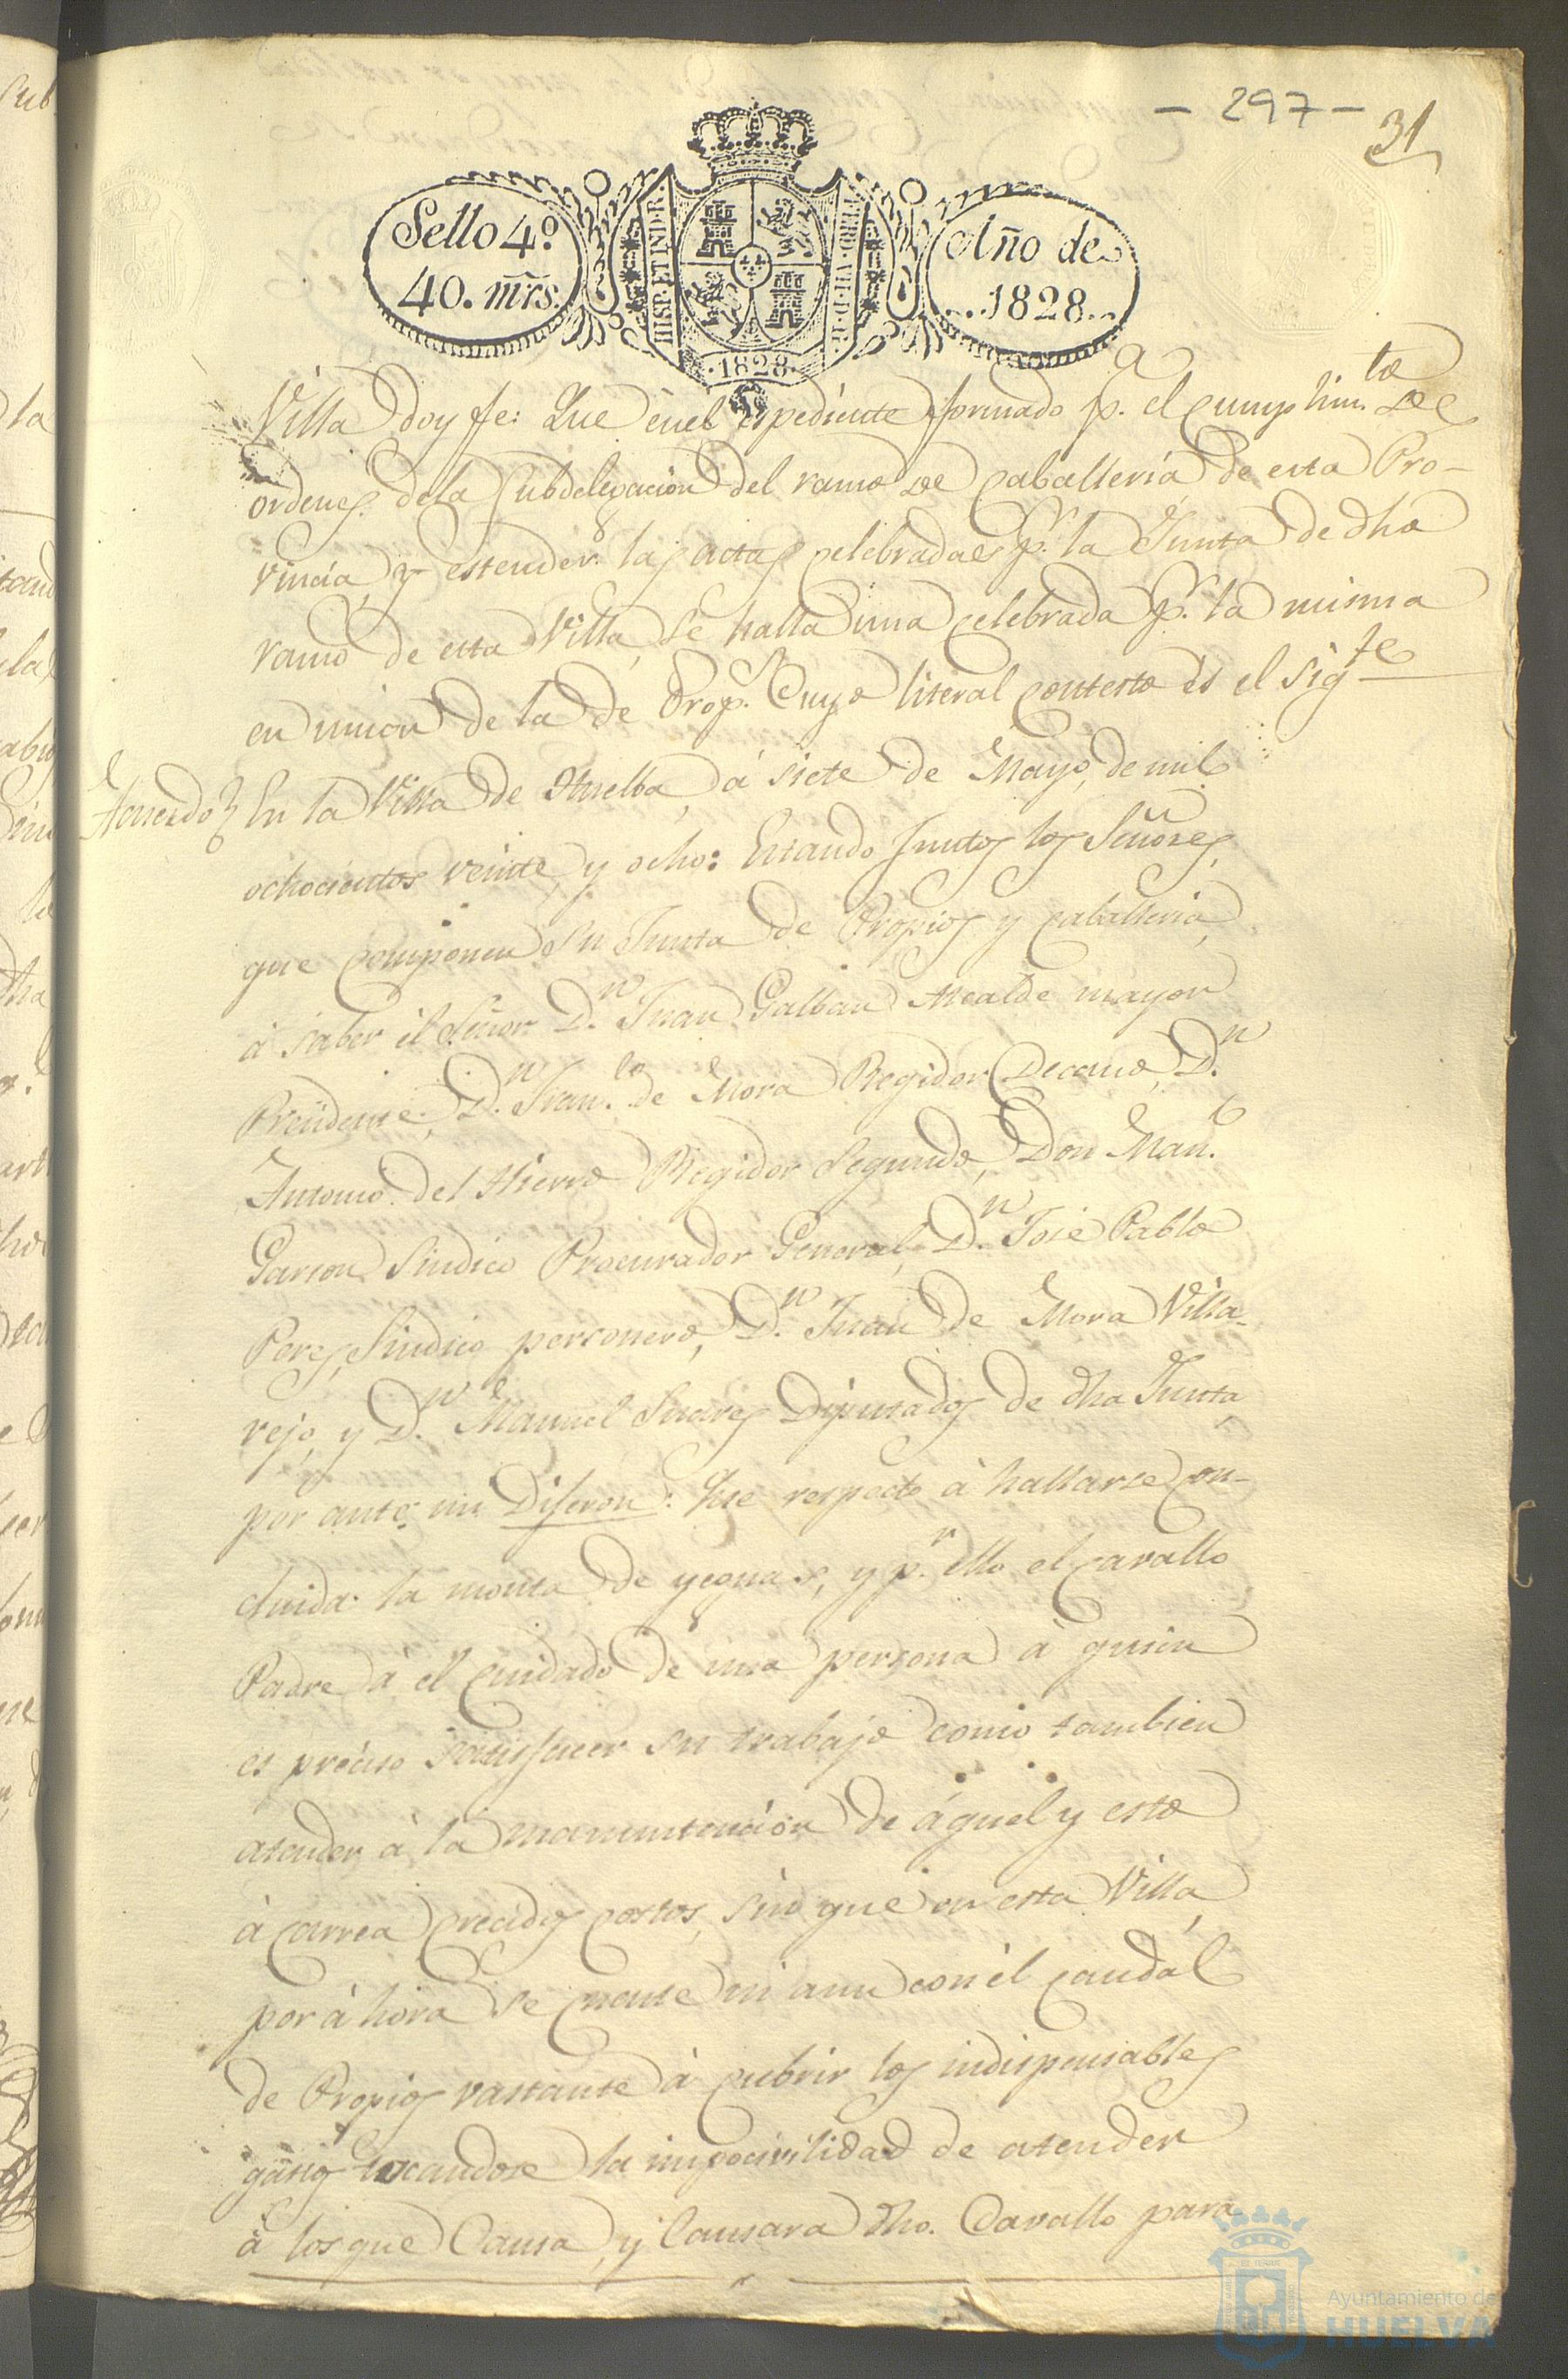 - 297 -
31
Sello 4º
40. mrs.
HISP. ET IND. R.
1828
Año de
...1828...
Villa doy fe: Que enel espediente formado pª. el cumplimto. de
ordenes. dela Subdelegacion del ramo de caballeria de esta Pro-
vincia, y estender las actas celebradas pr. la Junta de dho
ramo de esta Villa, se halla una celebrada pr. la misma
en union de la de Prop.s Cuyo literal contesto és el sigte
Acuerdo En la Villa de Huelba, á siete de Mayo, de mil
ochocientos veinte, y ocho: Estando Juntos los Señores,
que componen su Junta de Propios y caballeria,
á saber él Señor D.n Juan Galban Alcalde mayor
Presidente, D.n Fran.co de Mora Regidor Decano, D.n
Antonio del Hierro Regidor Segundo, Don Man.l
Garzon Sindico Procurador General, D.n José Pablo
Peres, Sindico personero, D.n Juan de Mora Villa-
rejo, y D.n Manuel Suares Diputados de dha Junta
por ante mi Dijeron: Que respecto á hallarse con-
cluida la monta de yeguas, y p.r ello el cavallo
Padre á él cuidado de una persona á quien
es préciso satisfacer su trabajo como tambien
atender á la manutencion de áquel y esto
á carrea crecidos costos, sin que en esta Villa
por áhora se cuente ni aun con él caudal
de Propios vastante á cubrir los indispensables
gastos tocandose la imposivilidad de atender
á los que Causa, y Causara dho. Cavallo para
Ayuntamiento de
HUELVA